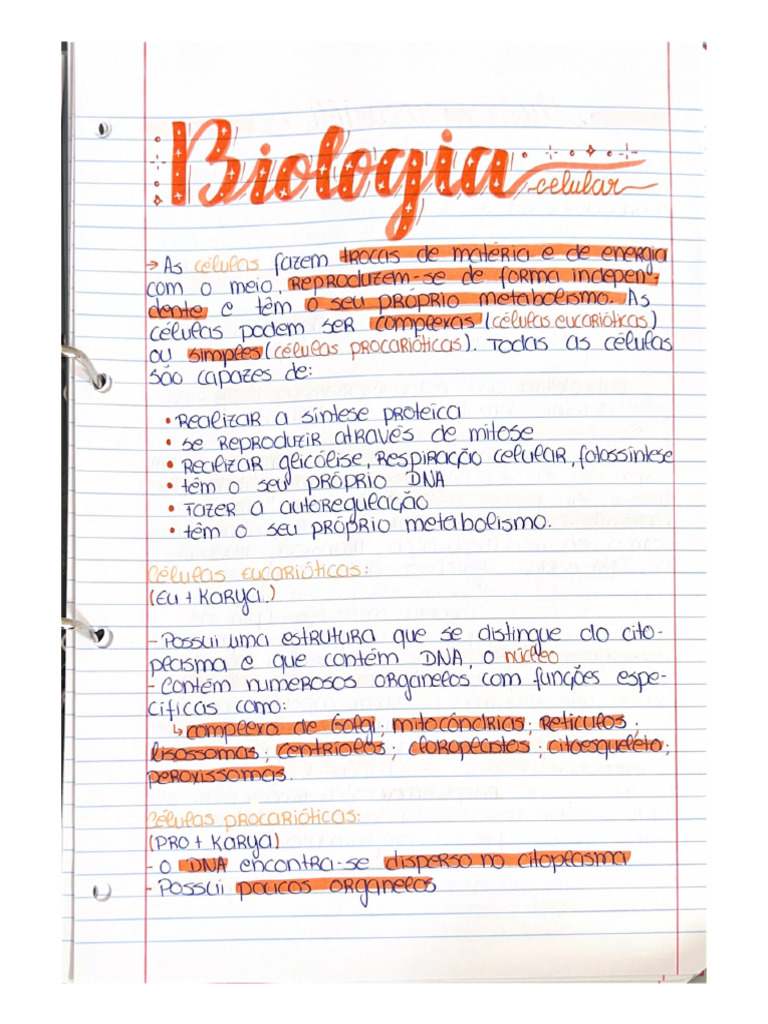 Biologia
celular
→ As células fazem trocas de matéria e de energia
com o meio, reproduzem-se de forma indepen-
dente e têm o seu próprio metabolismo. As
células podem ser complexas (células eucarióticas)
ou simples (células procarióticas). Todas as células
são capazes de:
• Realizar a síntese proteica
• se reproduzir através de mitose
• Realizar glicólise, respiração celular, fotossíntese
• têm o seu próprio DNA
• Fazer a autoregulação
• têm o seu próprio metabolismo.
Células eucarióticas:
(Eu + Karya)
- Possui uma estrutura que se distingue do cito-
plasma e que contém DNA, o núcleo
- Contém numerosos organelos com funções espe-
cíficas como:
↳ complexo de Golgi; mitocôndrias; retículos;
lisossomas; centríolos; cloroplastos; citoesqueleto;
peroxissomas.
Células procarióticas:
(Pro + Karya)
- O DNA encontra-se disperso no citoplasma
- Possui poucos organelos